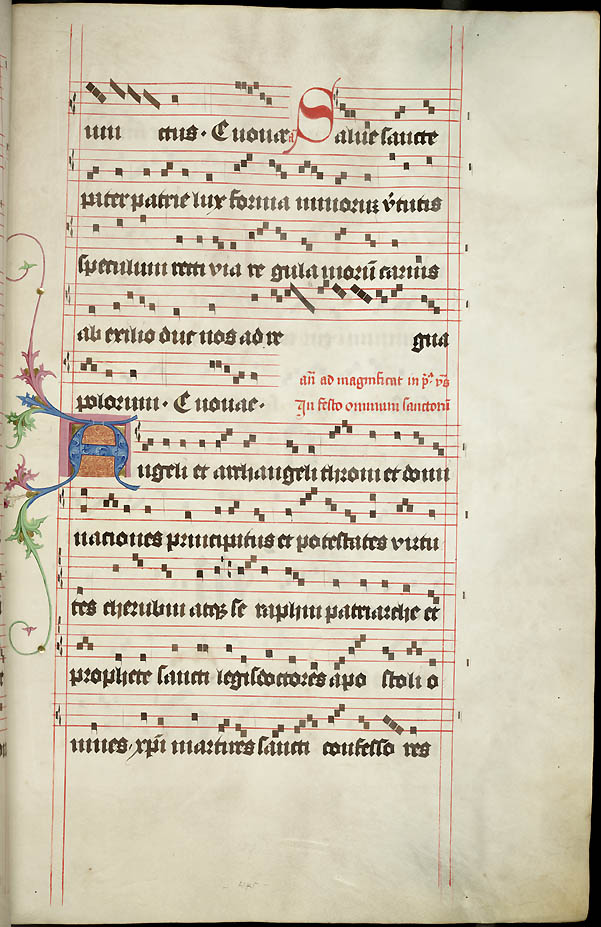 ctus. Euouae Salue sancte
pater patrie lux forma minorum v̄tutis
speculum recti via re gula morū carnis
ab exilio duc nos ad re gna
polorum. Euouae.
an̄ ad magnificat in
In festo omnium sanctorū
Angeli et archangeli throni et domi
naciones principatus et potestates virtu
tes cherubin atqꝫ se raphin patriarche et
prophete sancti legis doctores apo stoli o
mnes xp̄i martires sancti confesso res